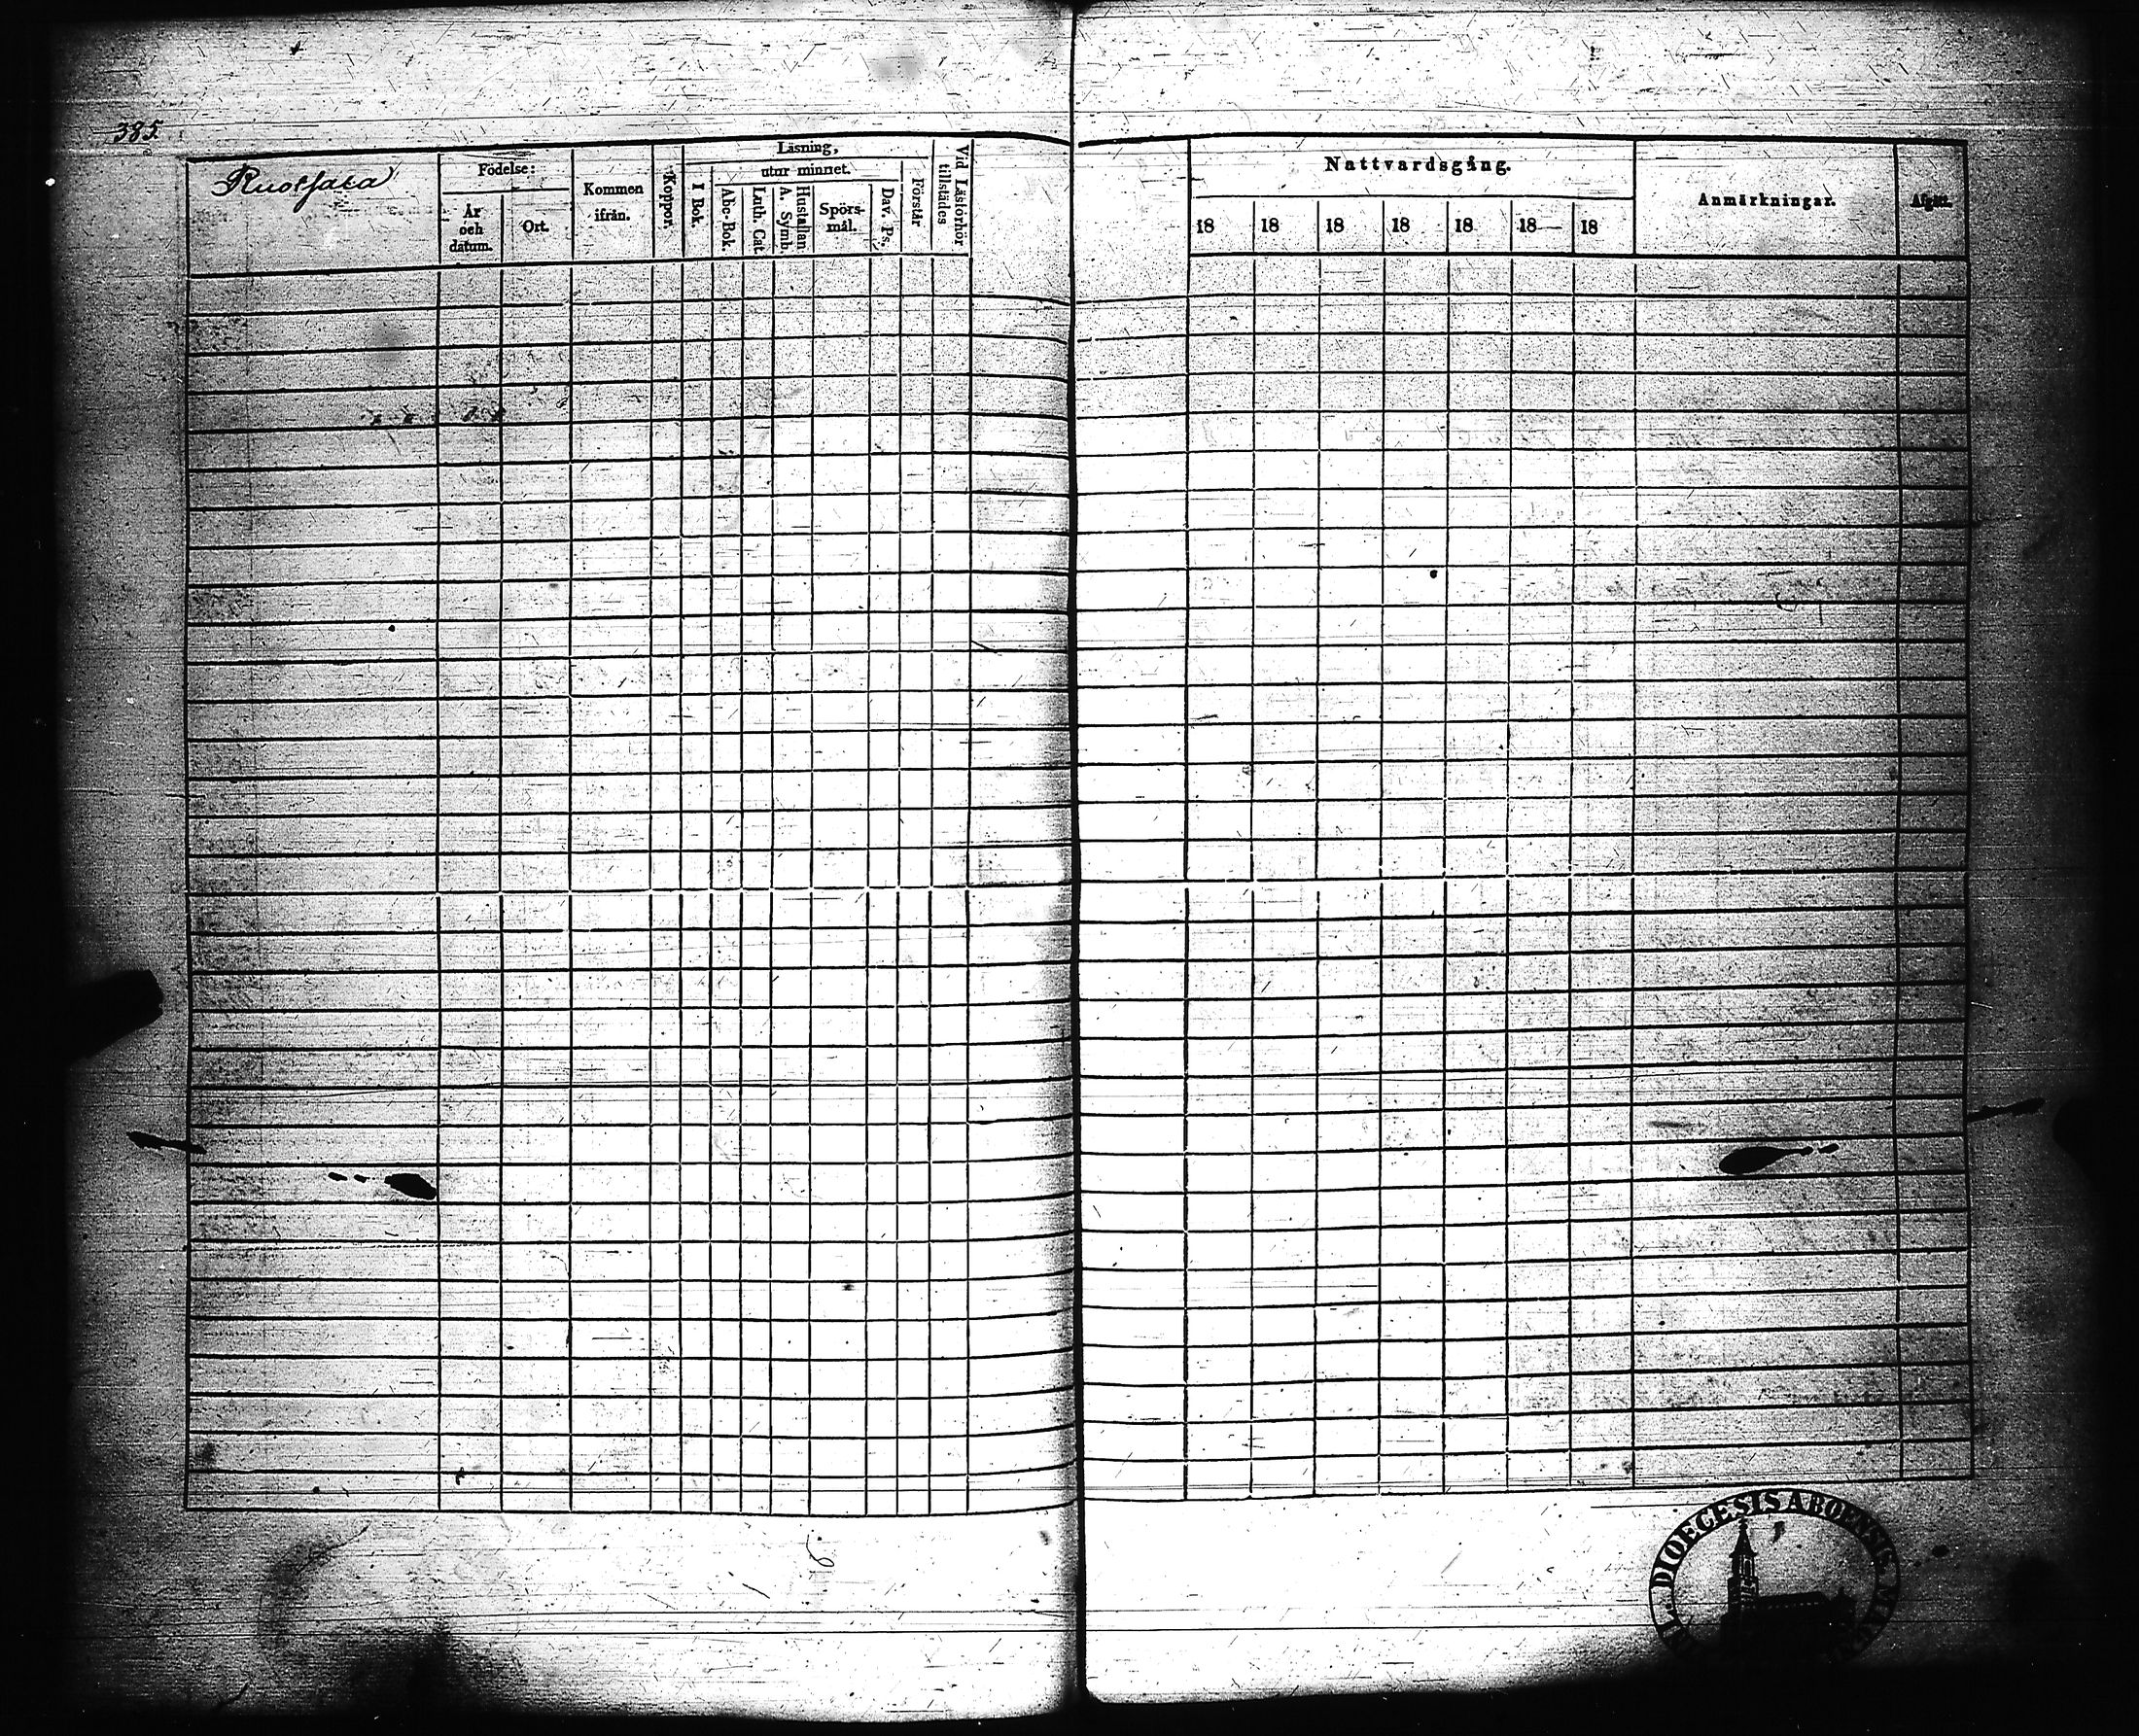 385.
Ruotsala
Födelse:
År och datum.
Ort.
Kommen ifrån.
Koppor.
Läsning,
I Bok.
utur minnet.
Abc-Bok.
Luth. Cat.
Hustaflan.
A. Symb.
Spörs-
mål.
Dav. Ps.
Förstår
Vid Läsförhör
tillstädes
Nattvardsgång.
18 18 18 18 18 18 18
Anmärkningar.
Afgått.
DIOECESIS ABOENSIS